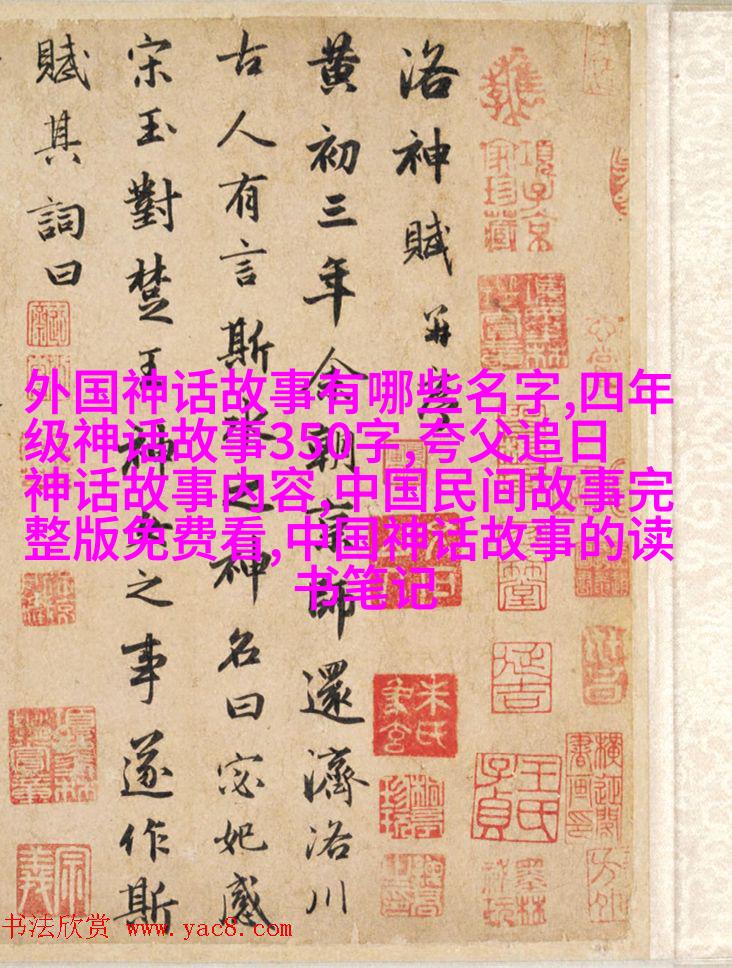 洛神賦并序
黄初三年余朝京師還濟洛川
古人有言斯水之神名曰宓妃感
宋玉對楚王神女之事遂作斯
賦其詞曰
外国神话故事有哪些名字,四年
级神话故事350字,夸父追日
神话故事内容,中国民间故事完
整版免费看,中国神话故事的读
书笔记
項子京
家珍藏
书法欣赏 www.yac8.com